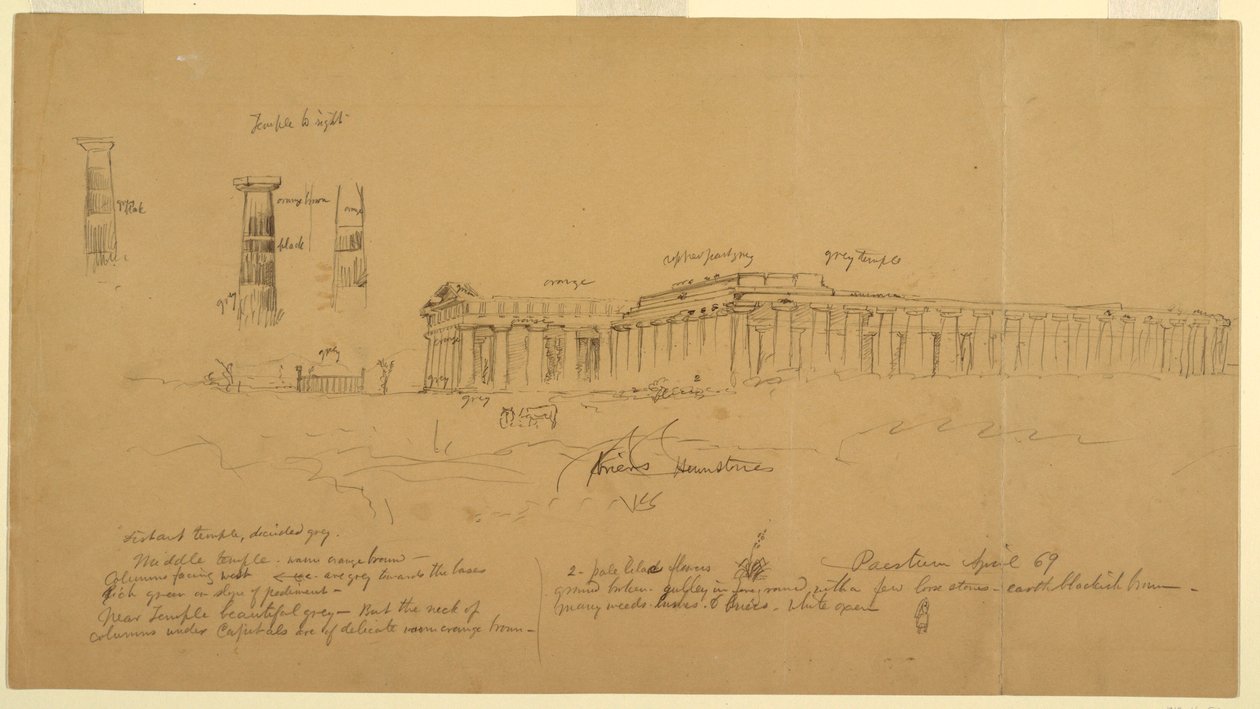 Temple to right
orange brown
orange
black
grey
grey
orange
upper part grey
grey temple
orange
orange
grey
grey
2
briers Hewn stones
Distant temple, decided grey.
Middle temple - warm orange brown -
Columns facing west are grey towards the bases
Rich green on slope of pediment -
Near Temple beautiful grey - But the neck of
columns under Capitals are of delicate warm orange brown -
2 - pale lilac flowers
ground broken - gulley in foreground with a few loose stones - earth blackish brown -
many weeds bushes & briers - White oxen
Paestum April 69